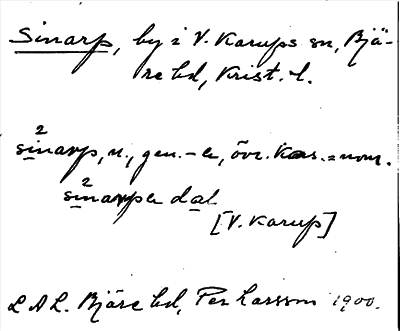 Sinarp, by i V. Karups sn, Bjä-
re hd, Krist. l.
sìnarp, n., gen. -a, övr. kas. = nom.
sìnarpa dal
[V. Karup]
LAL. Bjäre hd, Per Larsson 1900.